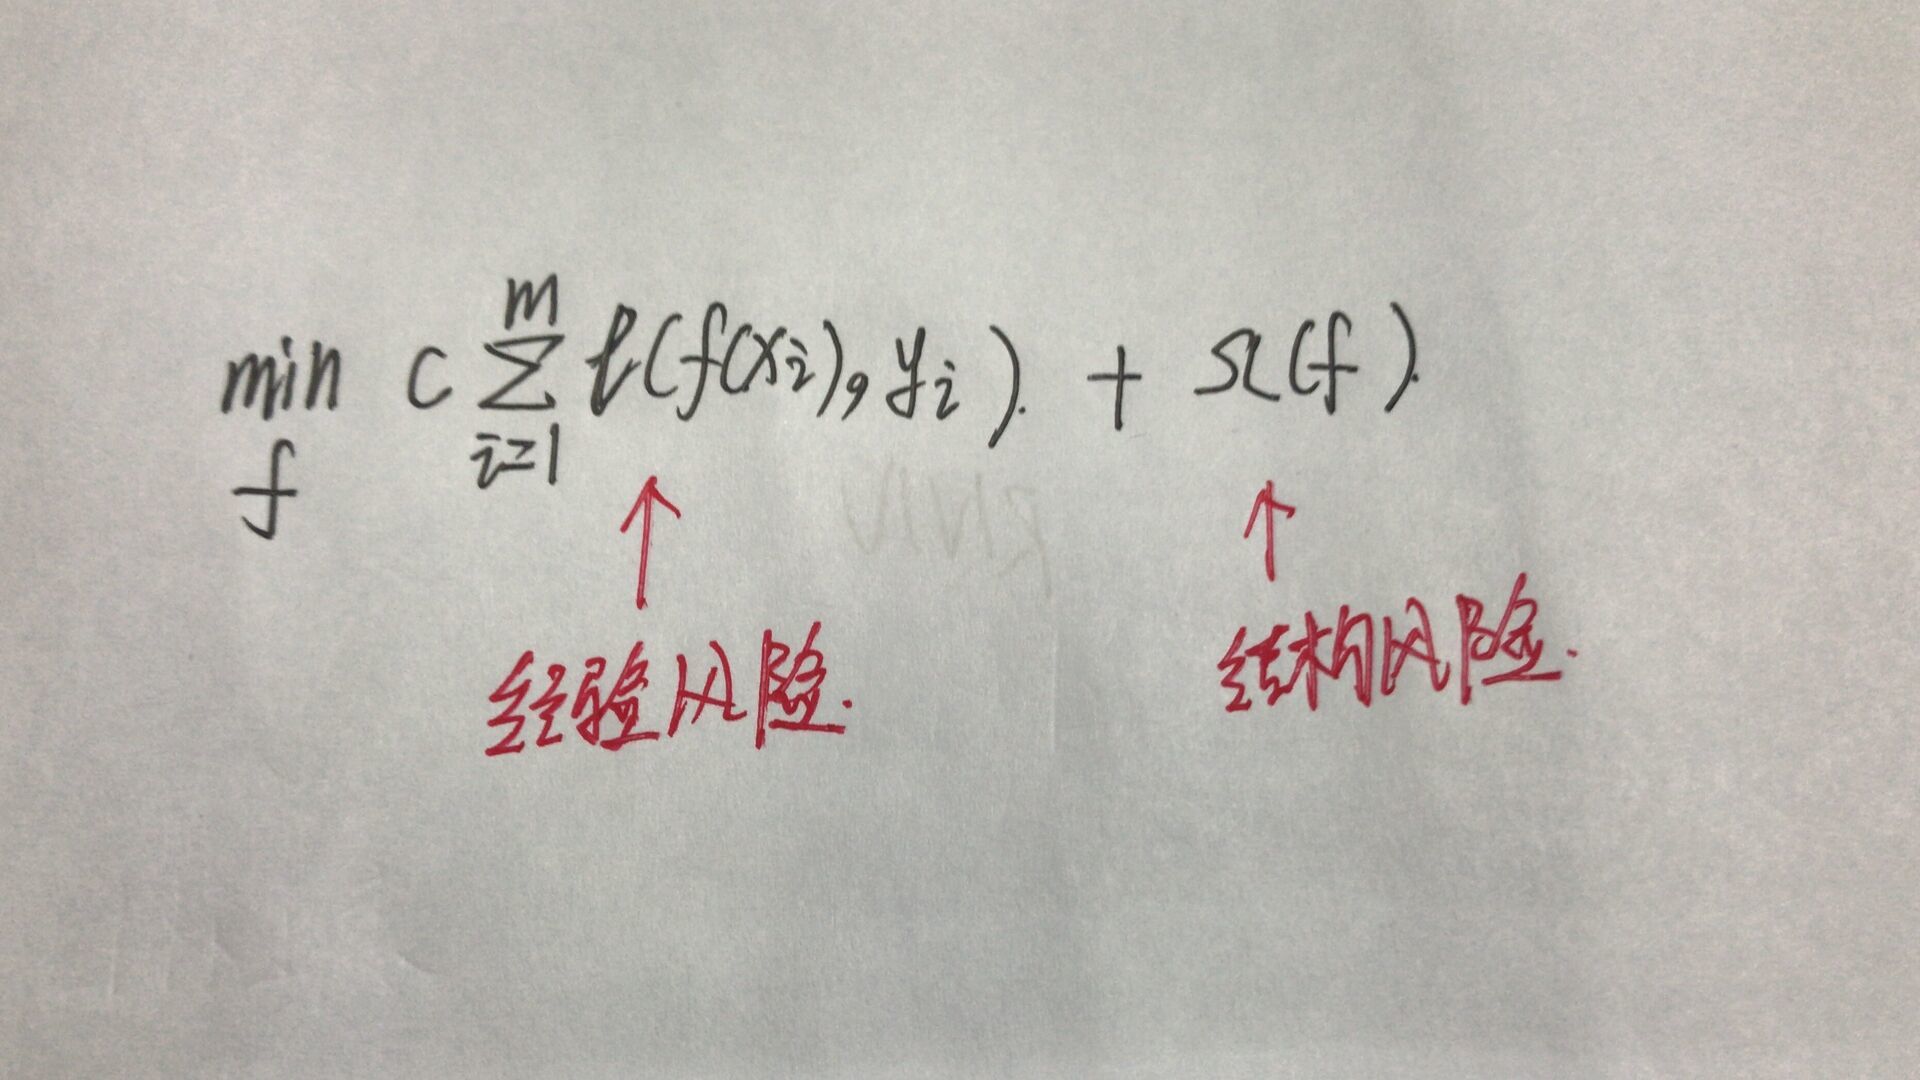 min_f C ∑_{i=1}^{m} ℓ(f(x_i), y_i). + Ω(f).
↑ ↑
经验风险. 结构风险.